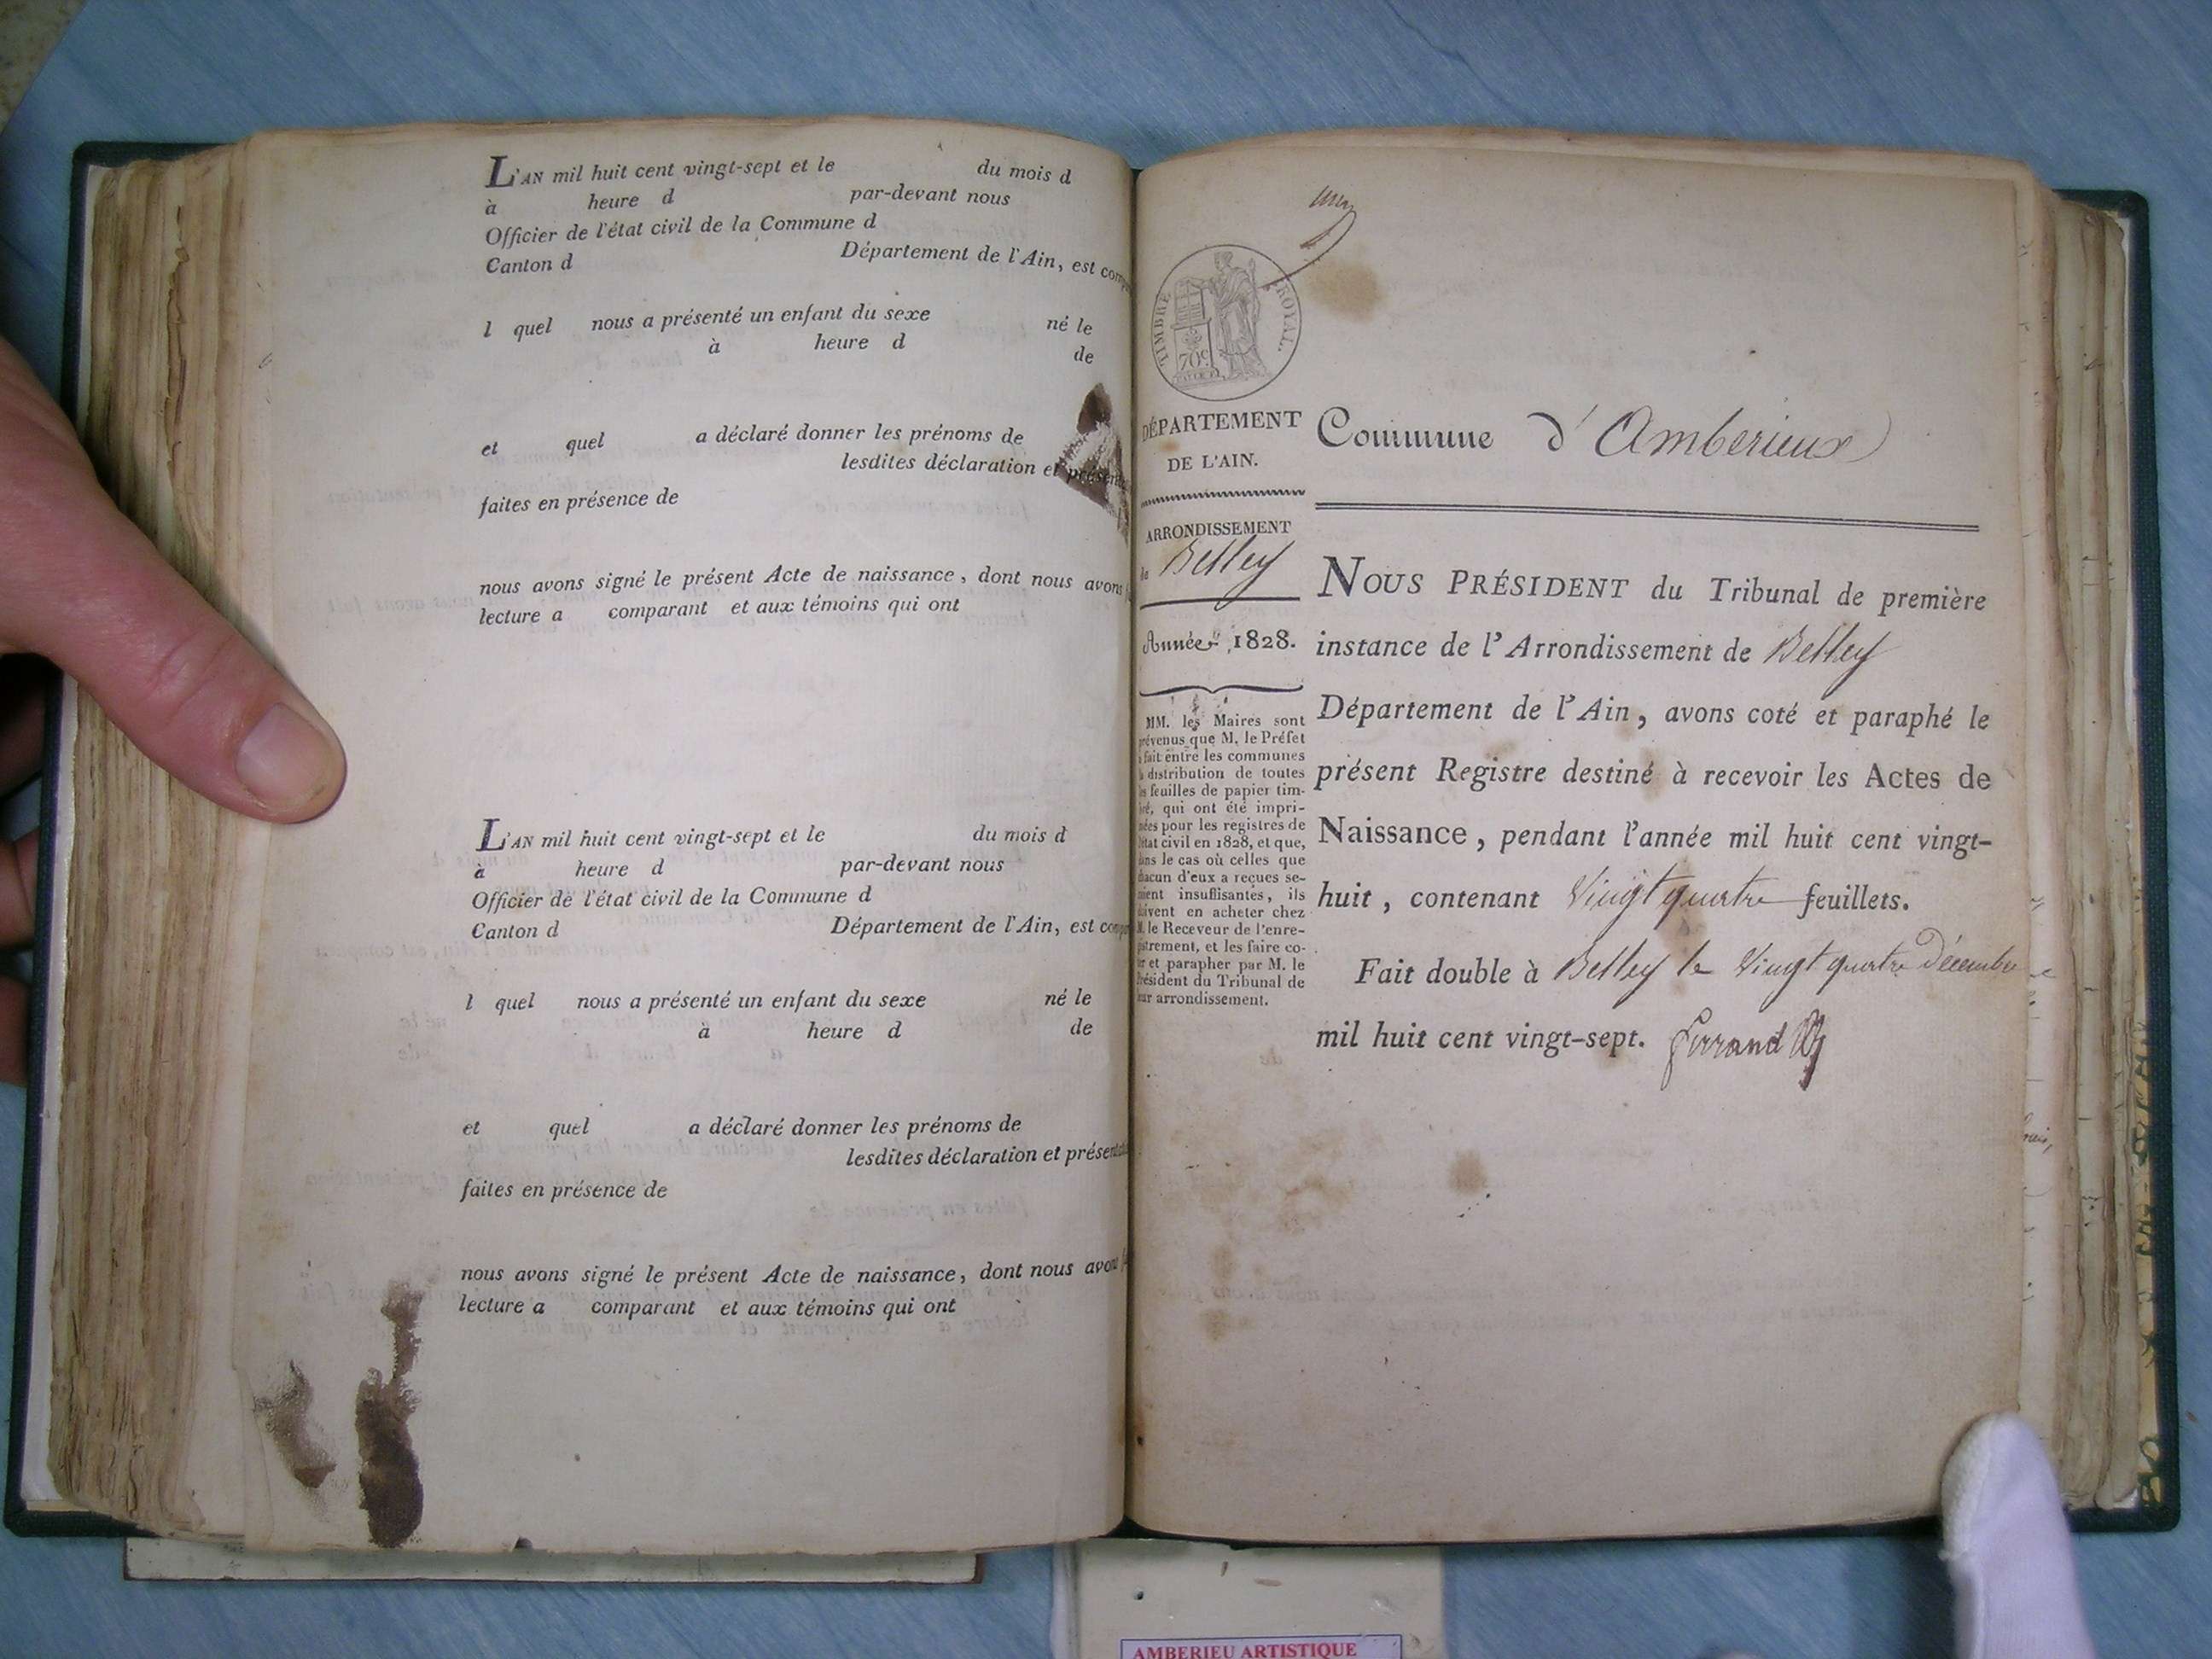 L'AN mil huit cent vingt-sept et le du mois d
à heure d par-devant nous
Officier de l'état civil de la Commune d
Canton d Département de l'Ain, est comp
l quel nous a présenté un enfant du sexe né le
à heure d de
et quel a déclaré donner les prénoms de
lesdites déclaration et présen
faites en présence de
nous avons signé le présent Acte de naissance, dont nous avons
lecture a comparant et aux témoins qui ont
L'AN mil huit cent vingt-sept et le du mois d
à heure d par-devant nous
Officier de l'état civil de la Commune d
Canton d Département de l'Ain, est comp
l quel nous a présenté un enfant du sexe né le
à heure d de
et quel a déclaré donner les prénoms de
lesdites déclaration et présenta
faites en présence de
nous avons signé le présent Acte de naissance, dont nous avon
lecture a comparant et aux témoins qui ont
TIMBRE ROYAL.
70c
DÉPARTEMENT
DE L'AIN.
ARRONDISSEMENT
de Belley
Année 1828.
MM. les Maires sont
prévenus que M. le Préfet
a fait entre les communes
la distribution de toutes
les feuilles de papier tim-
bré, qui ont été impri-
mées pour les registres de
l'état civil en 1828, et que,
dans le cas où celles que
chacun d'eux a reçues se-
raient insuffisantes, ils
doivent en acheter chez
M. le Receveur de l'enre-
gistrement, et les faire co-
ter et parapher par M. le
Président du Tribunal de
leur arrondissement.
Commune d'Amberieux
NOUS PRÉSIDENT du Tribunal de première
instance de l'Arrondissement de Belley
Département de l'Ain, avons coté et paraphé le
présent Registre destiné à recevoir les Actes de
Naissance, pendant l'année mil huit cent vingt-
huit, contenant Vingt quatre feuillets.
Fait double à Belley le Vingt quatre Décembre
mil huit cent vingt-sept. Ferrand
AMBERIEU ARTISTIQUE